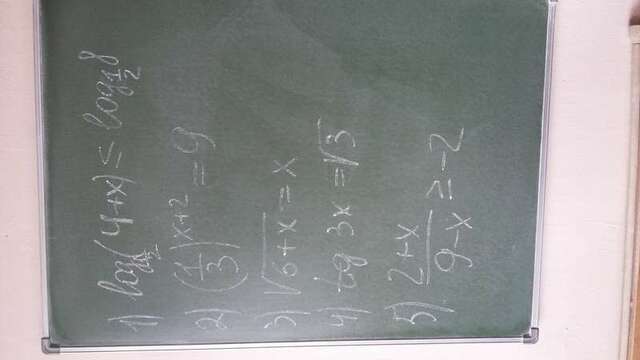 1) log_{1/2}(4+x) ≤ log_{1/2} 8
2) (1/3)^{x+2} = 9
3) √(6+x) = x
4) tg 3x = √3
5) (2+x)/(9-x) ≥ -2